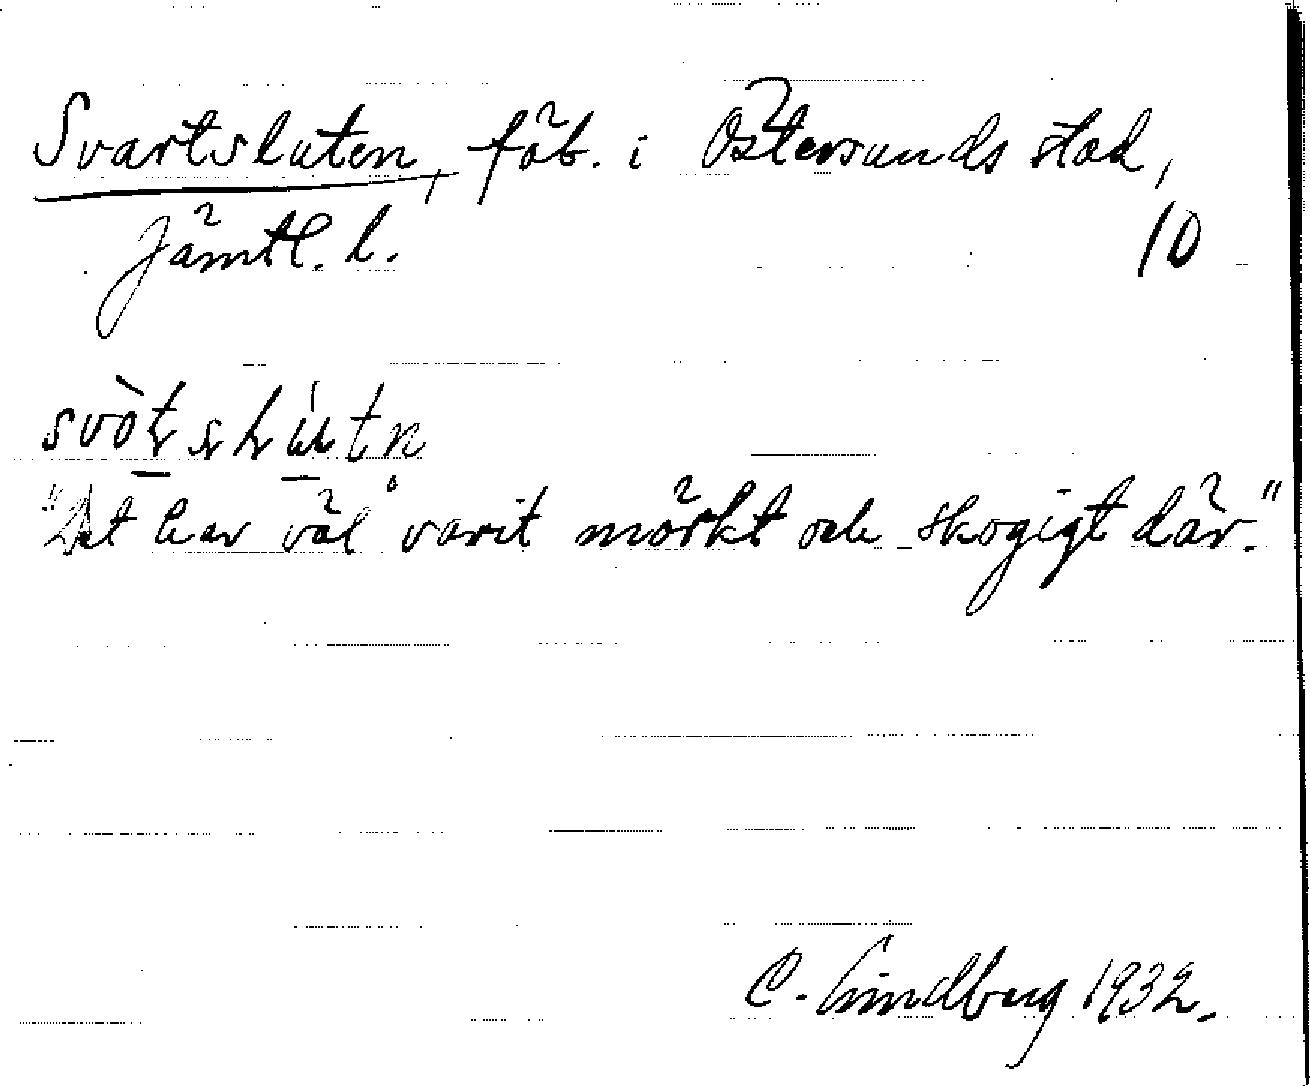 Svartsluten, fäb. i Östersunds stad,
Jämtl. l. 10
"Det har väl varit mörkt och skogigt där."
C. Lindberg 1932.